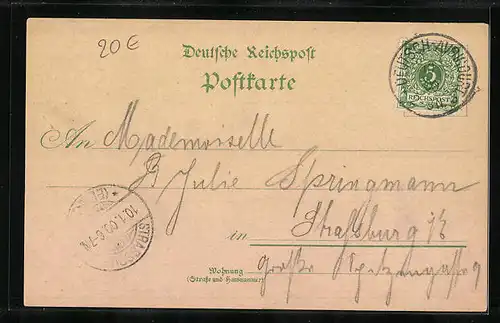 20€
Deutsche Reichspost
Postkarte
DEUTSCH-AVRICOURT
5
REICHSPOST
An Mademoiselle
Julie Springmann
10.1.00.6-7
STRASSB
in Straßburg i/E
Wohnung
(Straße und Hausnummer)
große Spitzengasse 9